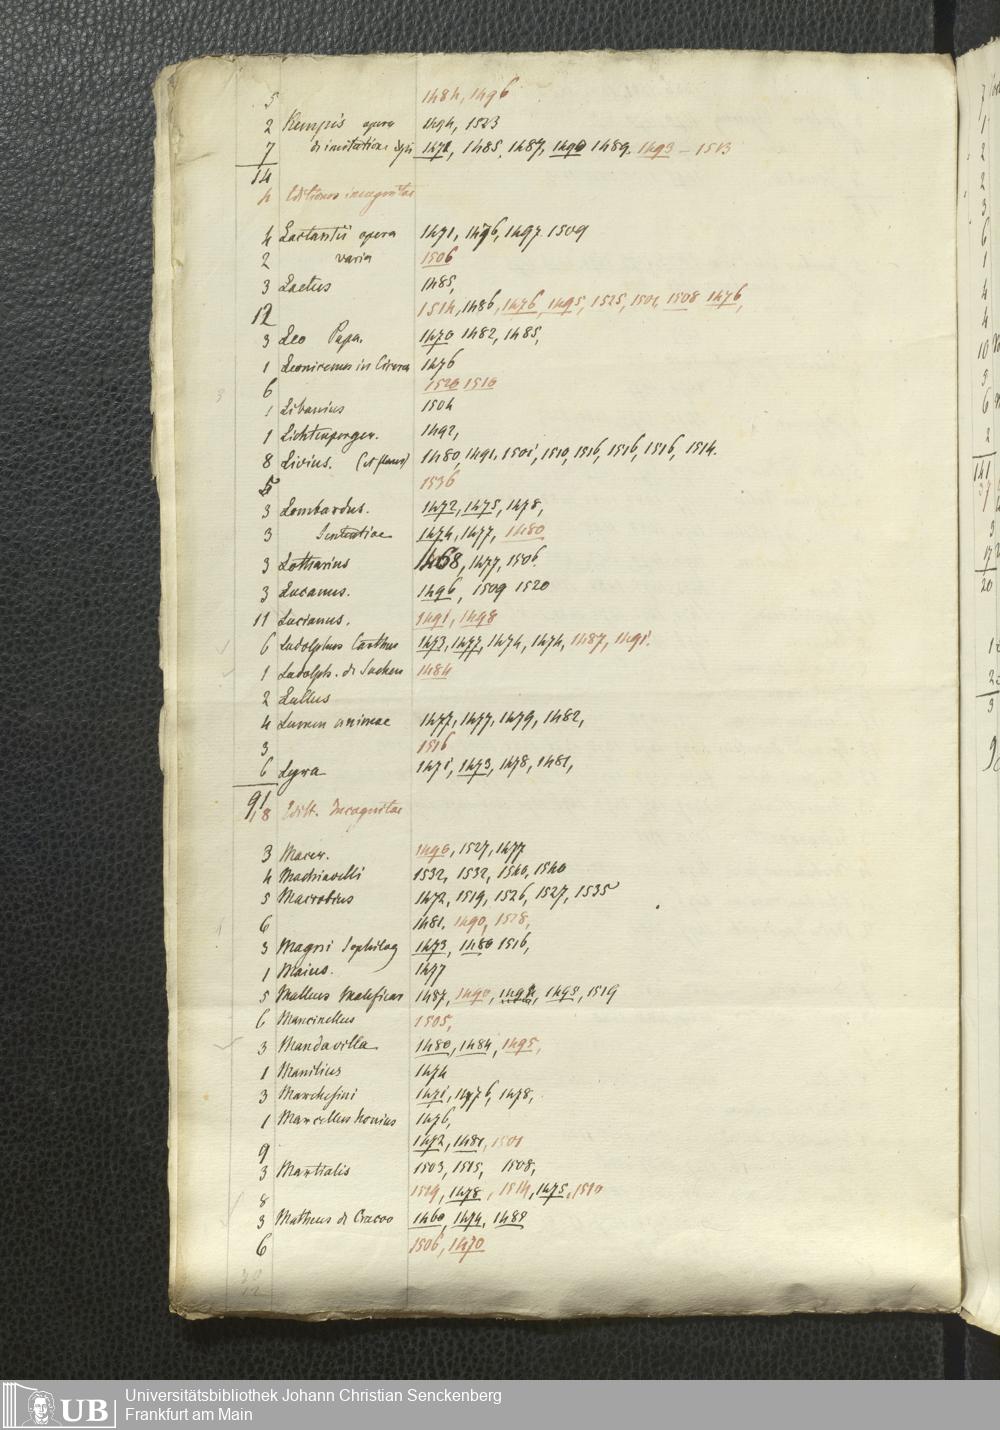 5 1484, 1496
2 Kempis opera 1494, 1523
7 di imitatione 1472, 1485, 1487, 1490 1489. 1493 - 1513
14
4 Editiones incognitae
4 Lactantii opera 1471, 1476, 1497. 1509
2 varia 1506
3 Laetus 1485,
12 1514, 1486, 1476, 1495, 1525, 1501, 1508 1476,
3 Leo Papa. 1470 1482, 1485,
1 Leonicenus in Cicero 1476
6 1520 1510
1 Libanius 1504
1 Lichtenperger. 1492,
8 Livius. (et florus) 1480, 1491. 1501, 1510, 1516, 1516, 1516, 1514.
5 1536
3 Lombardus. 1472, 1475, 1478,
3 Sententiae 1474, 1477, 1480
3 Lotharius 1468, 1477, 1506.
3 Lucanus. 1496, 1509 1520
11 Lucianus. 1491, 1498
6 Ludolphus Carthus 1473, 1477, 1474, 1474, 1487, 1491.
1 Ludolph. di Suchen 1484
2 Lullus
4 Lumen animae 1477, 1477, 1479, 1482,
3 1516
6 Lyra 1471, 1473, 1478, 1481,
91
18 Editt. Incognitae
3 Macer. 1490, 1527, 1477
4 Machiavelli 1532, 1532, 1540, 1540
5 Macrobius 1472, 1519, 1526, 1527, 1535
6 1481. 1490, 1528,
3 Magni Sophilog 1473, 1480 1516,
1 Maius. 1477
5 Malleus Maleficar 1487, 1490, 1494, 1498, 1519
6 Mancinellus 1505,
3 Mandavilla 1480, 1484, 1495,
1 Manilius 1474
3 Marchesini 1471, 1476, 1478,
1 Marcellus Nonius 1476,
9 1472, 1481, 1501
3 Martialis 1503, 1515, 1508,
8 1529, 1478, 1514, 1475, 1510
3 Matheus di Cracov 1460, 1474, 1489
6 1506, 1470
UB
Universitätsbibliothek Johann Christian Senckenberg
Frankfurt am Main